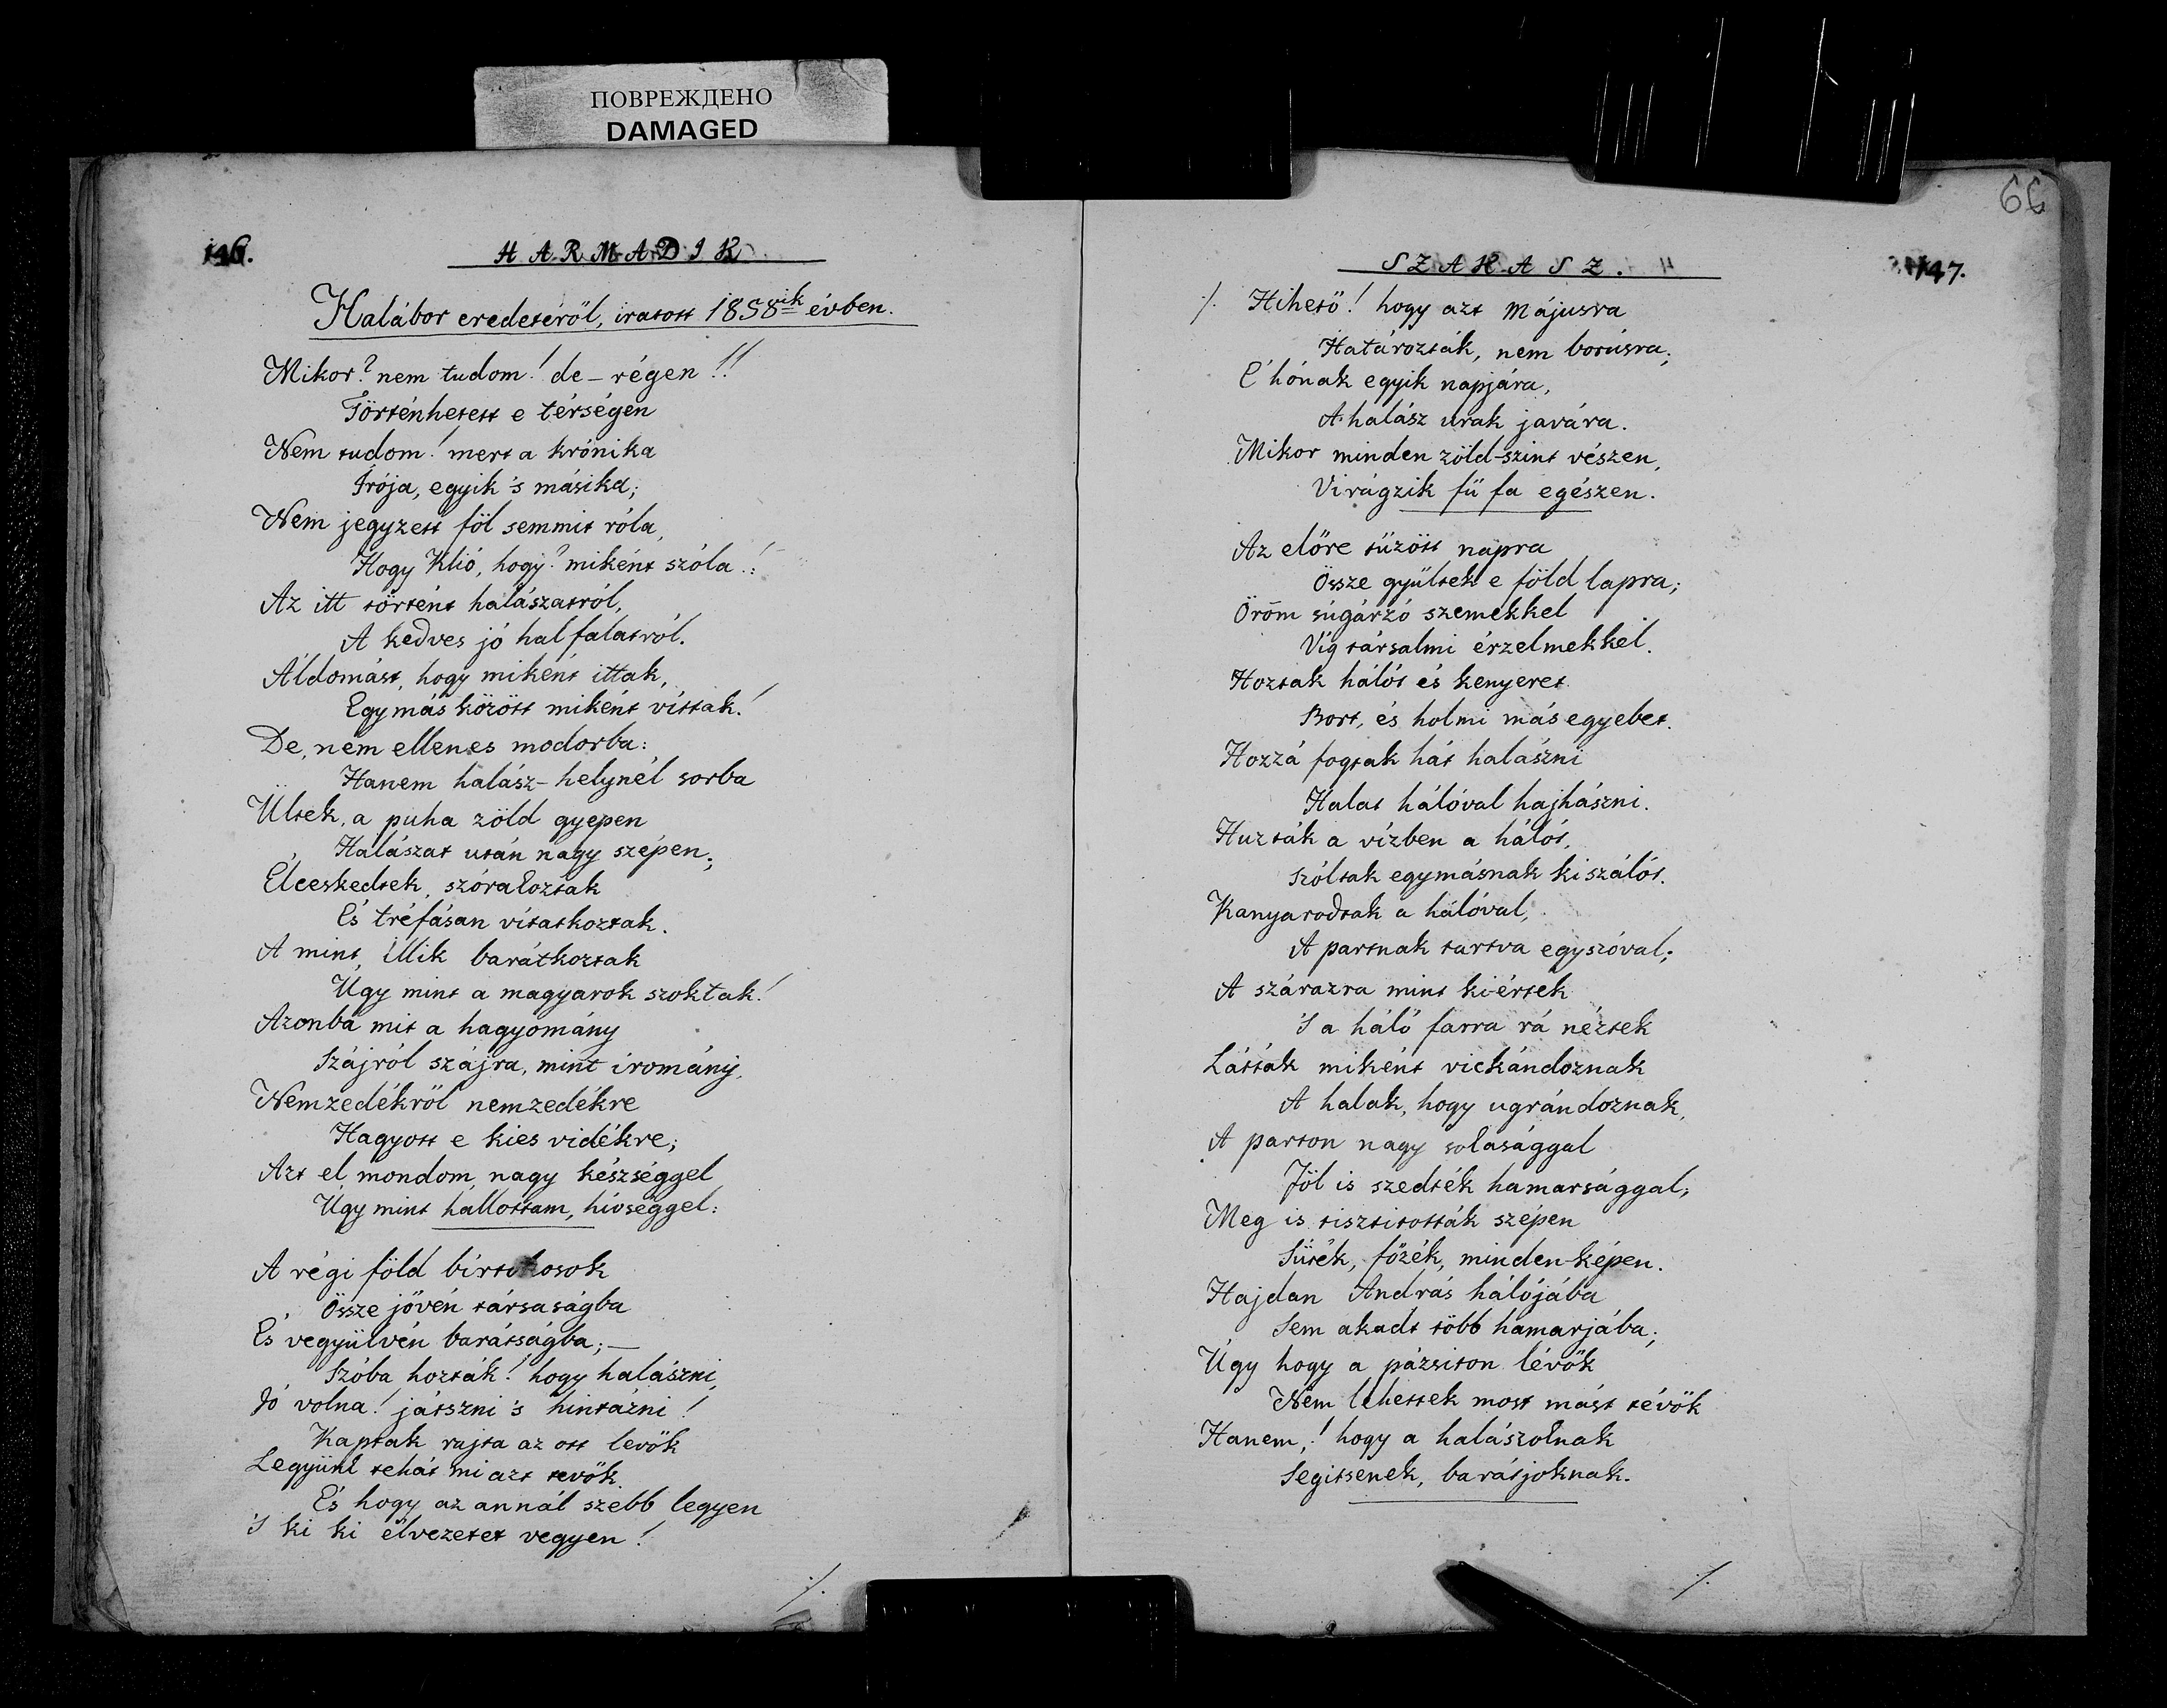 ПОВРЕЖДЕНО
DAMAGED
146.
HARMADIK
Halábor eredetéről, iratott 1858ik évben.
Mikor? nem tudom! de – régen!!
Történhetett e térségen
Nem tudom! mert a krónika
Irója, egyik 's másika;
Nem jegyzett föl semmit róla,
Hogy Klió, hogy? miként szóla!:
Az itt történt halászatról,
A kedves jó hal falatról.
Áldomást, hogy miként ittak,
Egymás között miként víttak!
De, nem ellenes modorba:
Hanem halász-helynél sorba
Ültek, a puha zöld gyepen
Halászat után nagy szépen;
Élceskedtek, szóraloztak
És tréfásan vitatkoztak.
A mint, illik barátkoztak
Úgy mint a magyarok szoktak!
Azonba mit a hagyomány
Szájról szájra, mint íromány,
Nemzedékről nemzedékre
Hagyott e kies vidékre;
Azt el mondom, nagy készséggel
Úgy mint hallottam, hívséggel:
A régi föld birtokosok
Össze jővén társaságba
És vegyülvén barátságba; –
Szóba hozták! hogy halászni,
Jó volna! játszni 's hintázni!
Kaptak rajta az ott levők
Legyünk tehát mi azt tevők
És hogy az annál szebb legyen
'S ki ki élvezetet vegyen!
·/.
66
SZAKASZ.
147.
·/. Hihető! hogy azt Májusra
Határozták, nem borúsra;
E' hónak egyik napjára,
A halász urak javára.
Mikor minden zöld-szint vészen,
Virágzik fű fa egészen.
Az előre tűzött napra
Össze gyűltek e föld lapra;
Öröm súgárzó szemekkel
Víg társalmi érzelmekkel.
Hoztak hálót és kenyeret
Bort, és holmi más egyebet.
Hozzá fogtak hát halászni
Halat hálóval hajhászni.
Huzták a vízben a hálót,
Szóltak egymásnak kiszálót.
Kanyarodtak a hálóval,
A partnak tartva egyszóval;
A szárazra mint ki-értek
'S a háló farra rá néztek
Látták miként vickándoznak
A halak, hogy ugrándoznak,
A parton nagy solasággal
Föl is szedték hamarsággal;
Meg is tisztitották szépen
Sűték, főzék, minden-képen.
Hajdan András hálójába
Sem akadt több hamarjába;
Úgy hogy a pázsiton lévők
Nem lehettek most mást tévők
Hanem,! hogy a halászolnak
Segitsenek, barátjoknak.
·/.